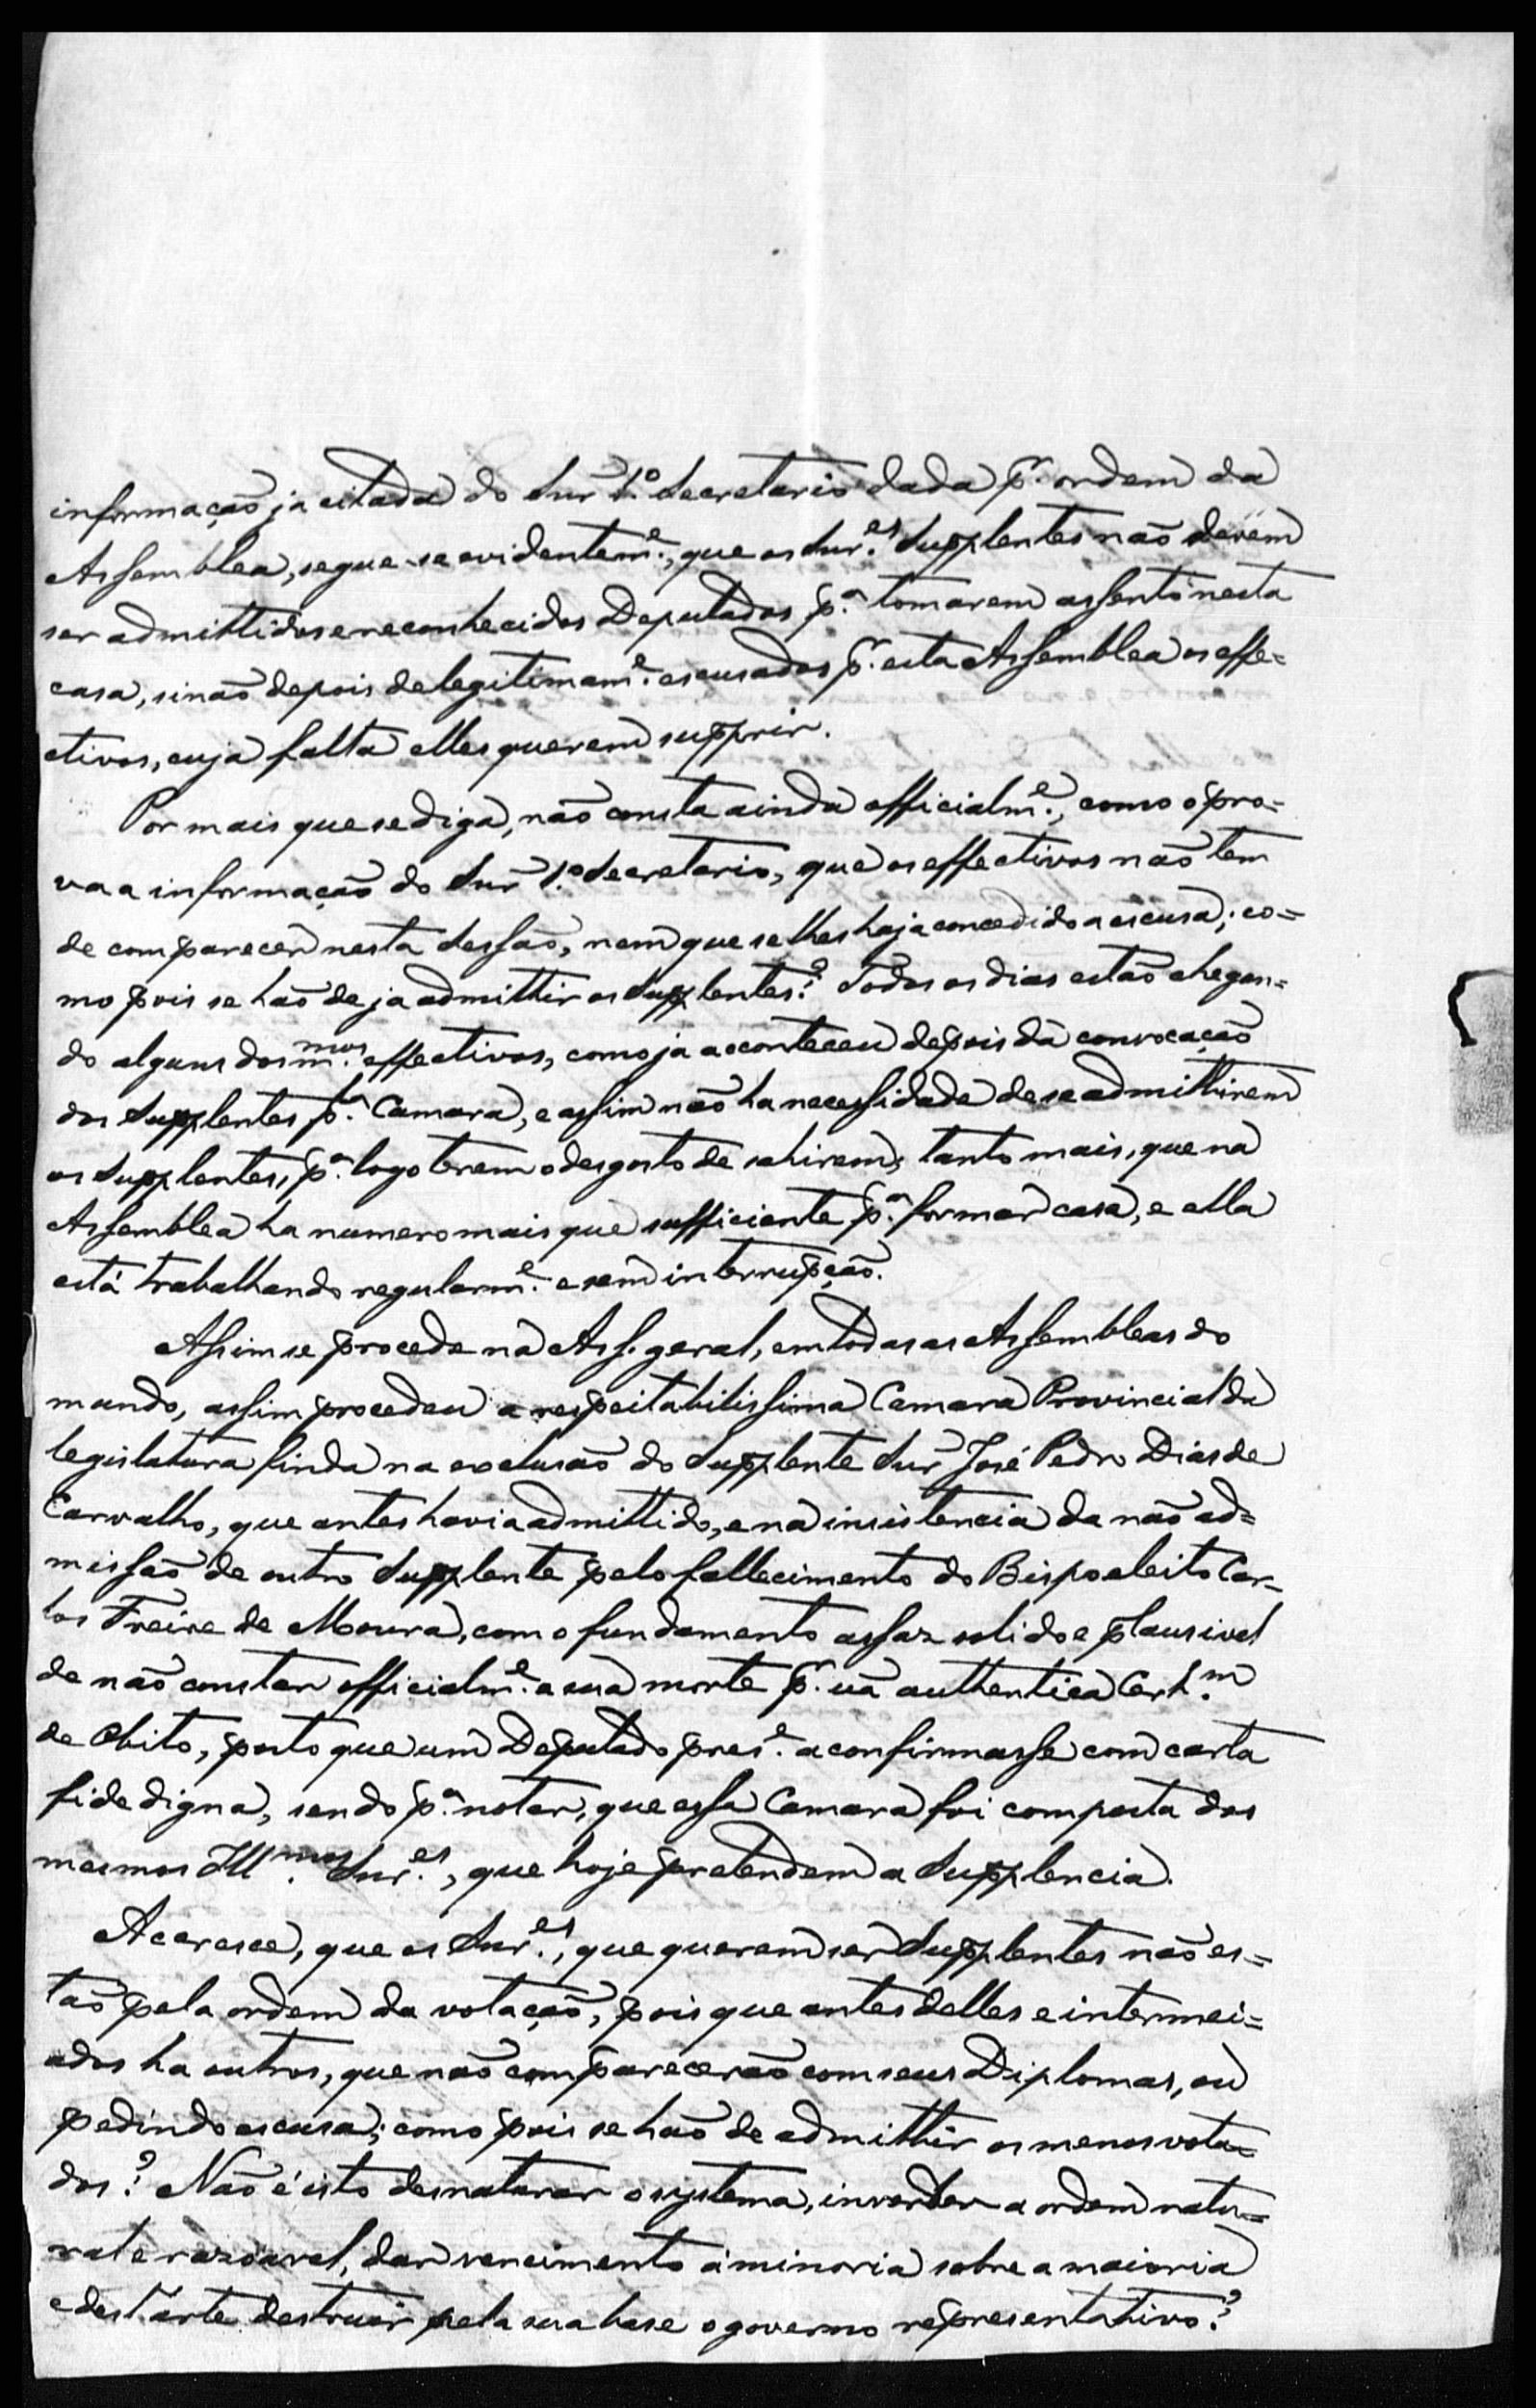 informação ja citada do Snr̃ 1.º Secretario dada p.r ordem da
Assemblea, segue-se evidentem.e, que os Snr.es Supplentes não devem
ser admittidos e reconhecidos Deputados p.a tomarem assento nesta
casa, sinão depois de legitimam.e escusados p.r esta Assemblea os effe=
ctivos, cuja falta elles querem supprir.
Por mais que se diga, não consta ainda officialm.e, como o pro=
va a informação do Snr̃ 1.º Secretario, que os effectivos não tem
de comparecer nesta Sessão, nem que se lhes haja concedido a escusa; co=
mo pois se hão de ja admittir os Supplentes? Todos os dias estão chegan=
do alguns dos m.mos effectivos, como ja aconteceu depois da convocação
dos Supplentes p.la Camara, e assim não ha necessidade de se admittirem
os Supplentes, p.a logo terem o desgosto de sahirem; tanto mais, que na
Assemblea ha numero mais que sufficiente p.a formar casa, e ella
está trabalhando regularm.e e sem interrupção.
Assim se procede na Ass. geral, em todas as Assembleas do
mundo, assim procedeu a respeitabilissima Camara Provincial da
legislatura finda na exclusão do Supplente Snr̃ José Pedro Dias de
Carvalho, que antes havia admittido, e na insistencia da não ad=
missão de outro Supplente pelo fallecimento do Bispo eleito Car=
los Freire de Moura, com o fundamento assaz solido e plausivel
de não constar officialm.e a sua morte p.r uã authentica Cert.m
de Obito, posto que um Deputado pres.e a confirmasse com carta
fidedigna, sendo p.a notar, que essa Camara foi composta dos
mesmos Ill.mos Snr.es, que hoje pretendem a Supplencia.
Acceresce, que os Snr.es, que querem ser Supplentes não es=
tão pela ordem da votação, pois que antes delles e intermei=
ados ha outros, que não comparecerão com seus Diplomas, ou
pedindo escusa; como pois se hão de admittir os menos vota=
dos? Não é isto desnaturar o systema, inverter a ordem natu=
ral e razoavel, dar vencimento á minoria sobre a maioria
e dest'arte destruir pela sua base o governo representativo?